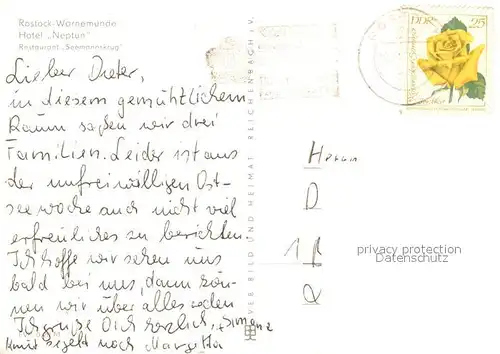 Rostock-Warnemünde
Hotel „Neptun“
Restaurant „Seemannskrug“
Lieber Dieter,
in diesem gemühtlichem
Raum saßen wir drei
Familien. Leider ist aus
der unfreiwilligen Ost-
seewoche auch nicht viel
erfreuliches zu berichten.
Ich hoffe wir sehen uns
bald bei uns, dann kön-
nen wir über alles reden
Ich grüße Dich herzlich, Simone
noch Margitta
VER BILD UND HEIMAT REICHENBACH i. V.
DDR 25
Herrn
D
1
R
privacy protection
Datenschutz